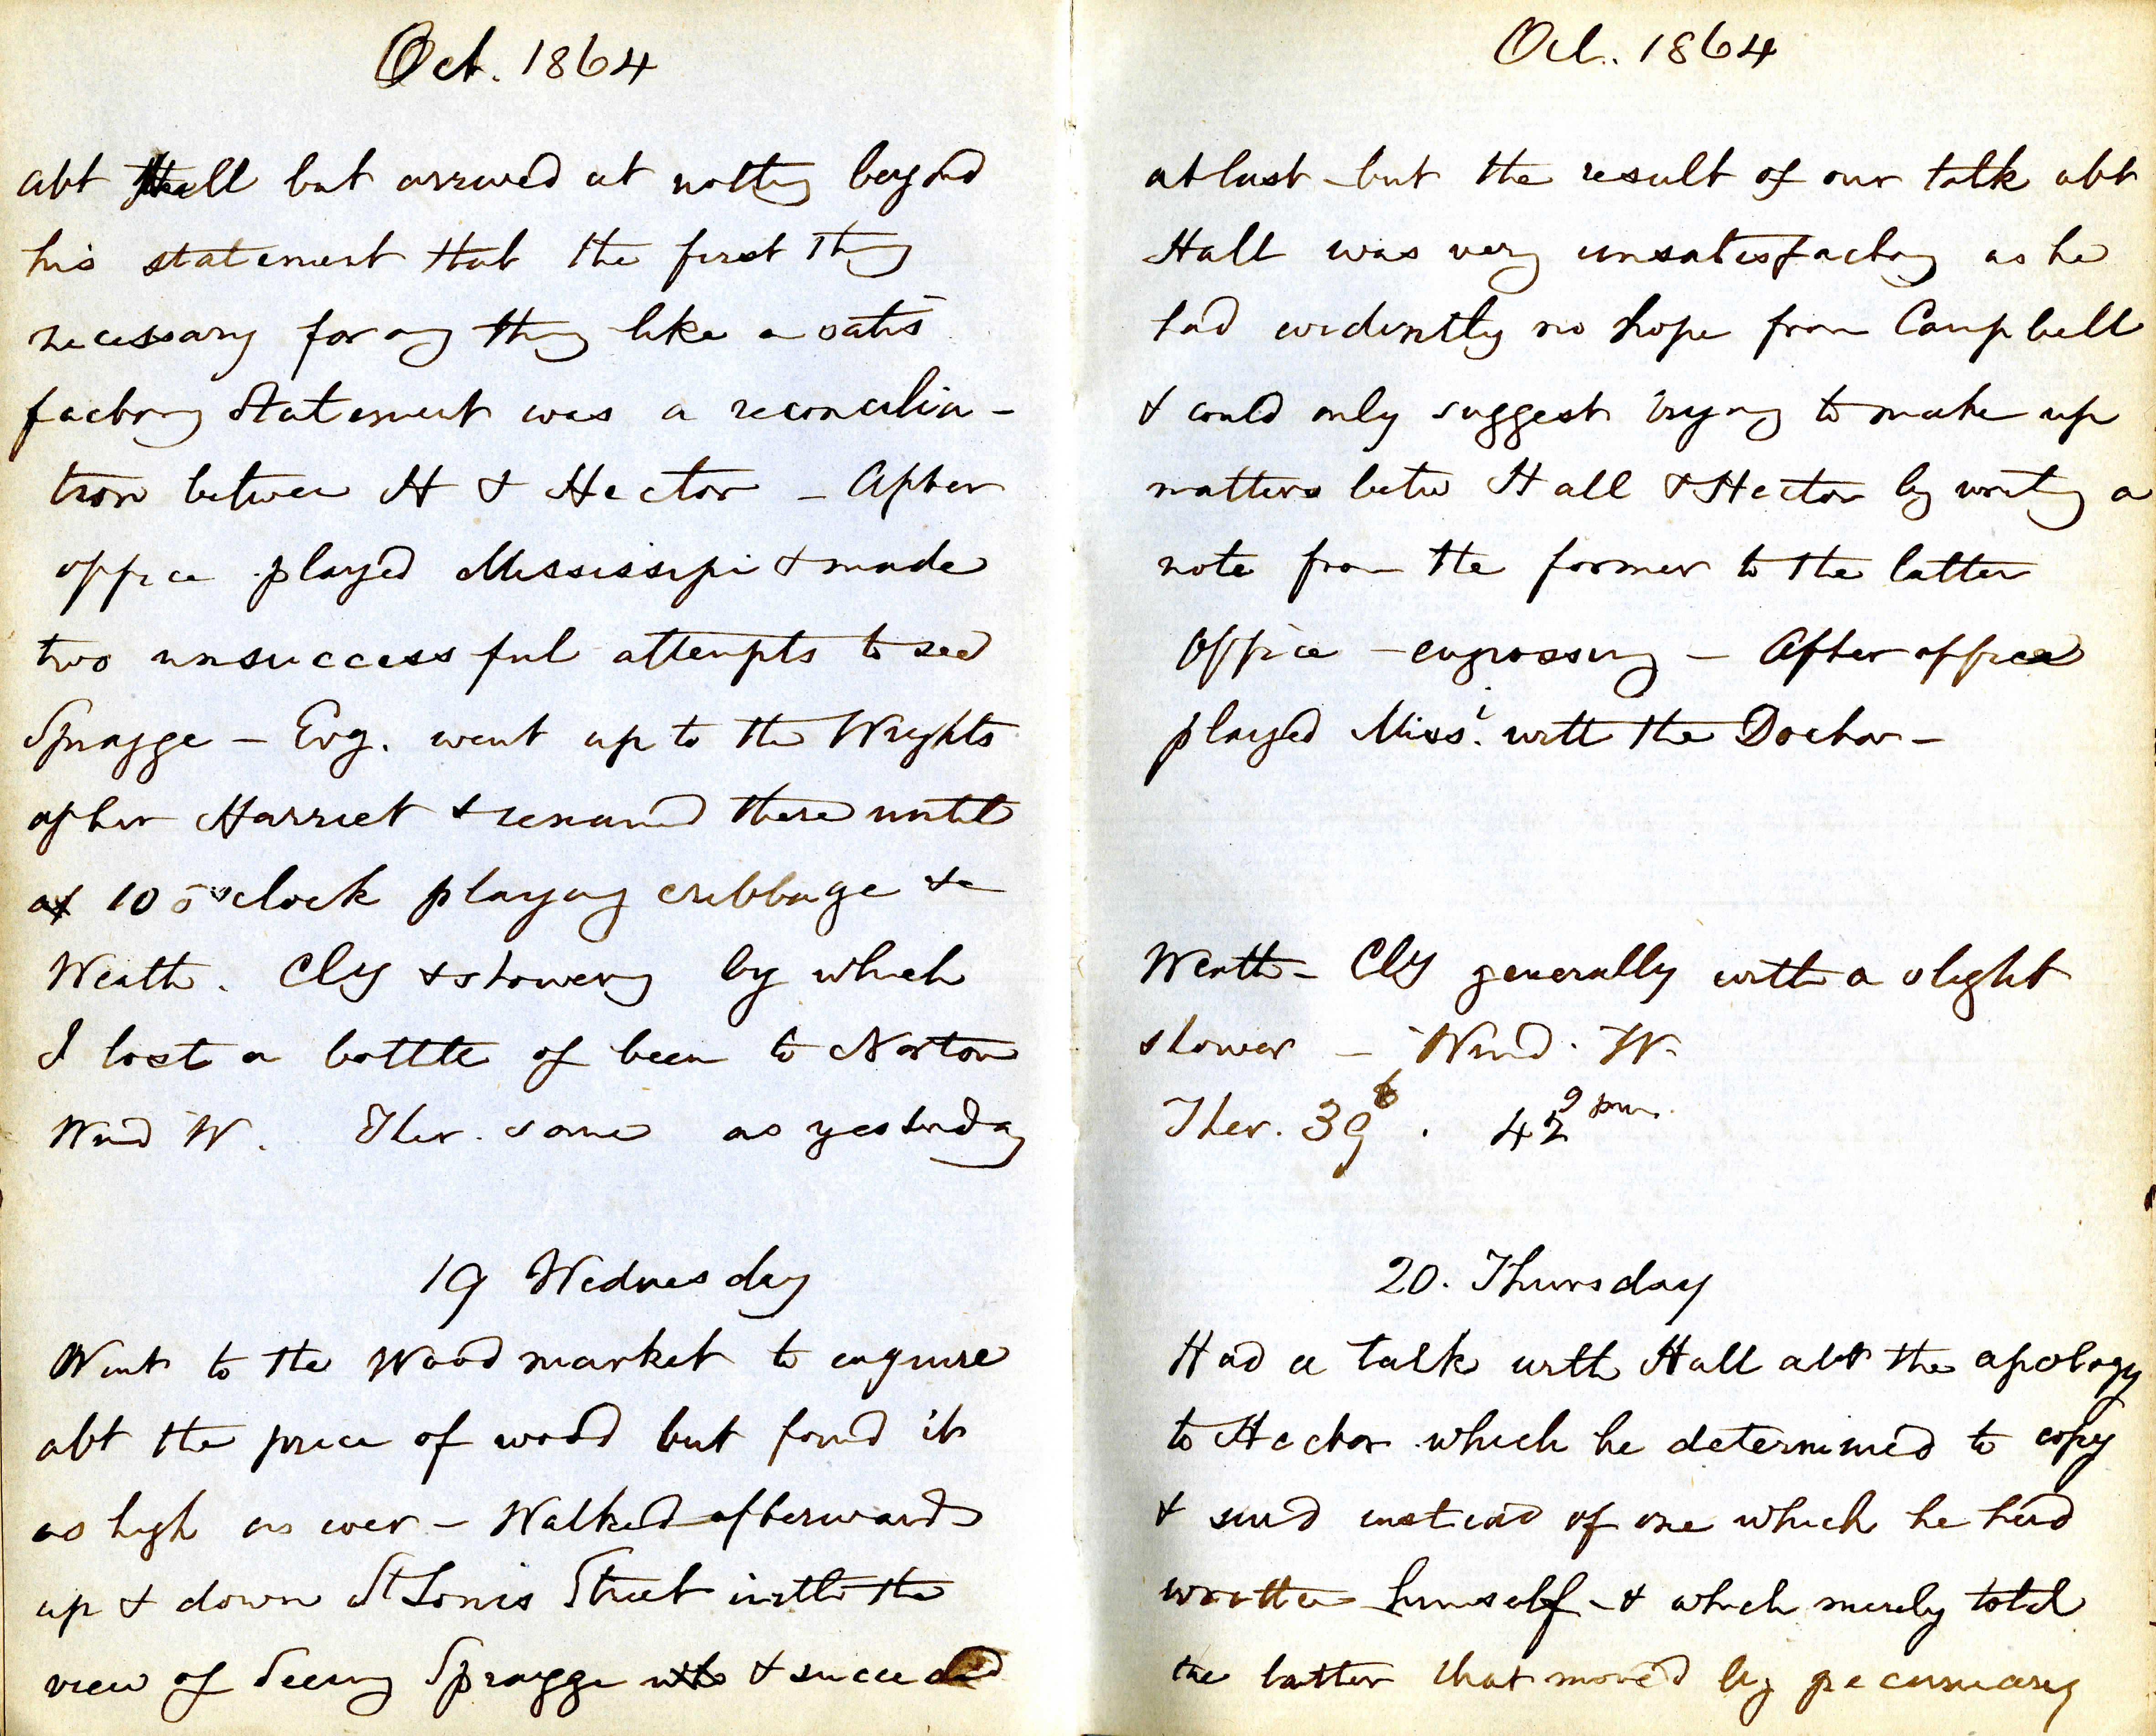 Oct. 1864
abt Hall but arrived at nothg beyond
his statement that the first thg
necessary for any thg like a satis
factory statement was a reconcilia-
tion between H & Hector - After
office played Mississipi & made
two unsuccessful attempts to see
Spragge - Evg. went up to the Wrights
after Harriet & remained there until
10 o'clock playing cribbage &c
Weath. Cly & showery by which
I lost a bottle of beer to Norton
Wind W. Ther. same as yesterday
19 Wednesday
Went to the Wood market to enquire
abt the price of wood but found it
as high as ever - Walked afterwards
up & down St Louis Street with the
view of seeing Spragge & succeeded
Oct. 1864
at last - but the result of our talk abt
Hall was very unsatisfactory as he
had evidently no hope from Campbell
& could only suggest trying to make up
matters betw Hall & Hector by writg a
note from the former to the latter
Office - engrossing - After office
played Missi. with the Doctor -
Weath - Cly generally with a slight
shower - Wind. W.
Ther. 39 . 42 9 pm.
20. Thursday
Had a talk with Hall abt the apology
to Hector which he determined to copy
& send instead of one which he had
written himself - & which merely told
the latter that moved by pecuniary